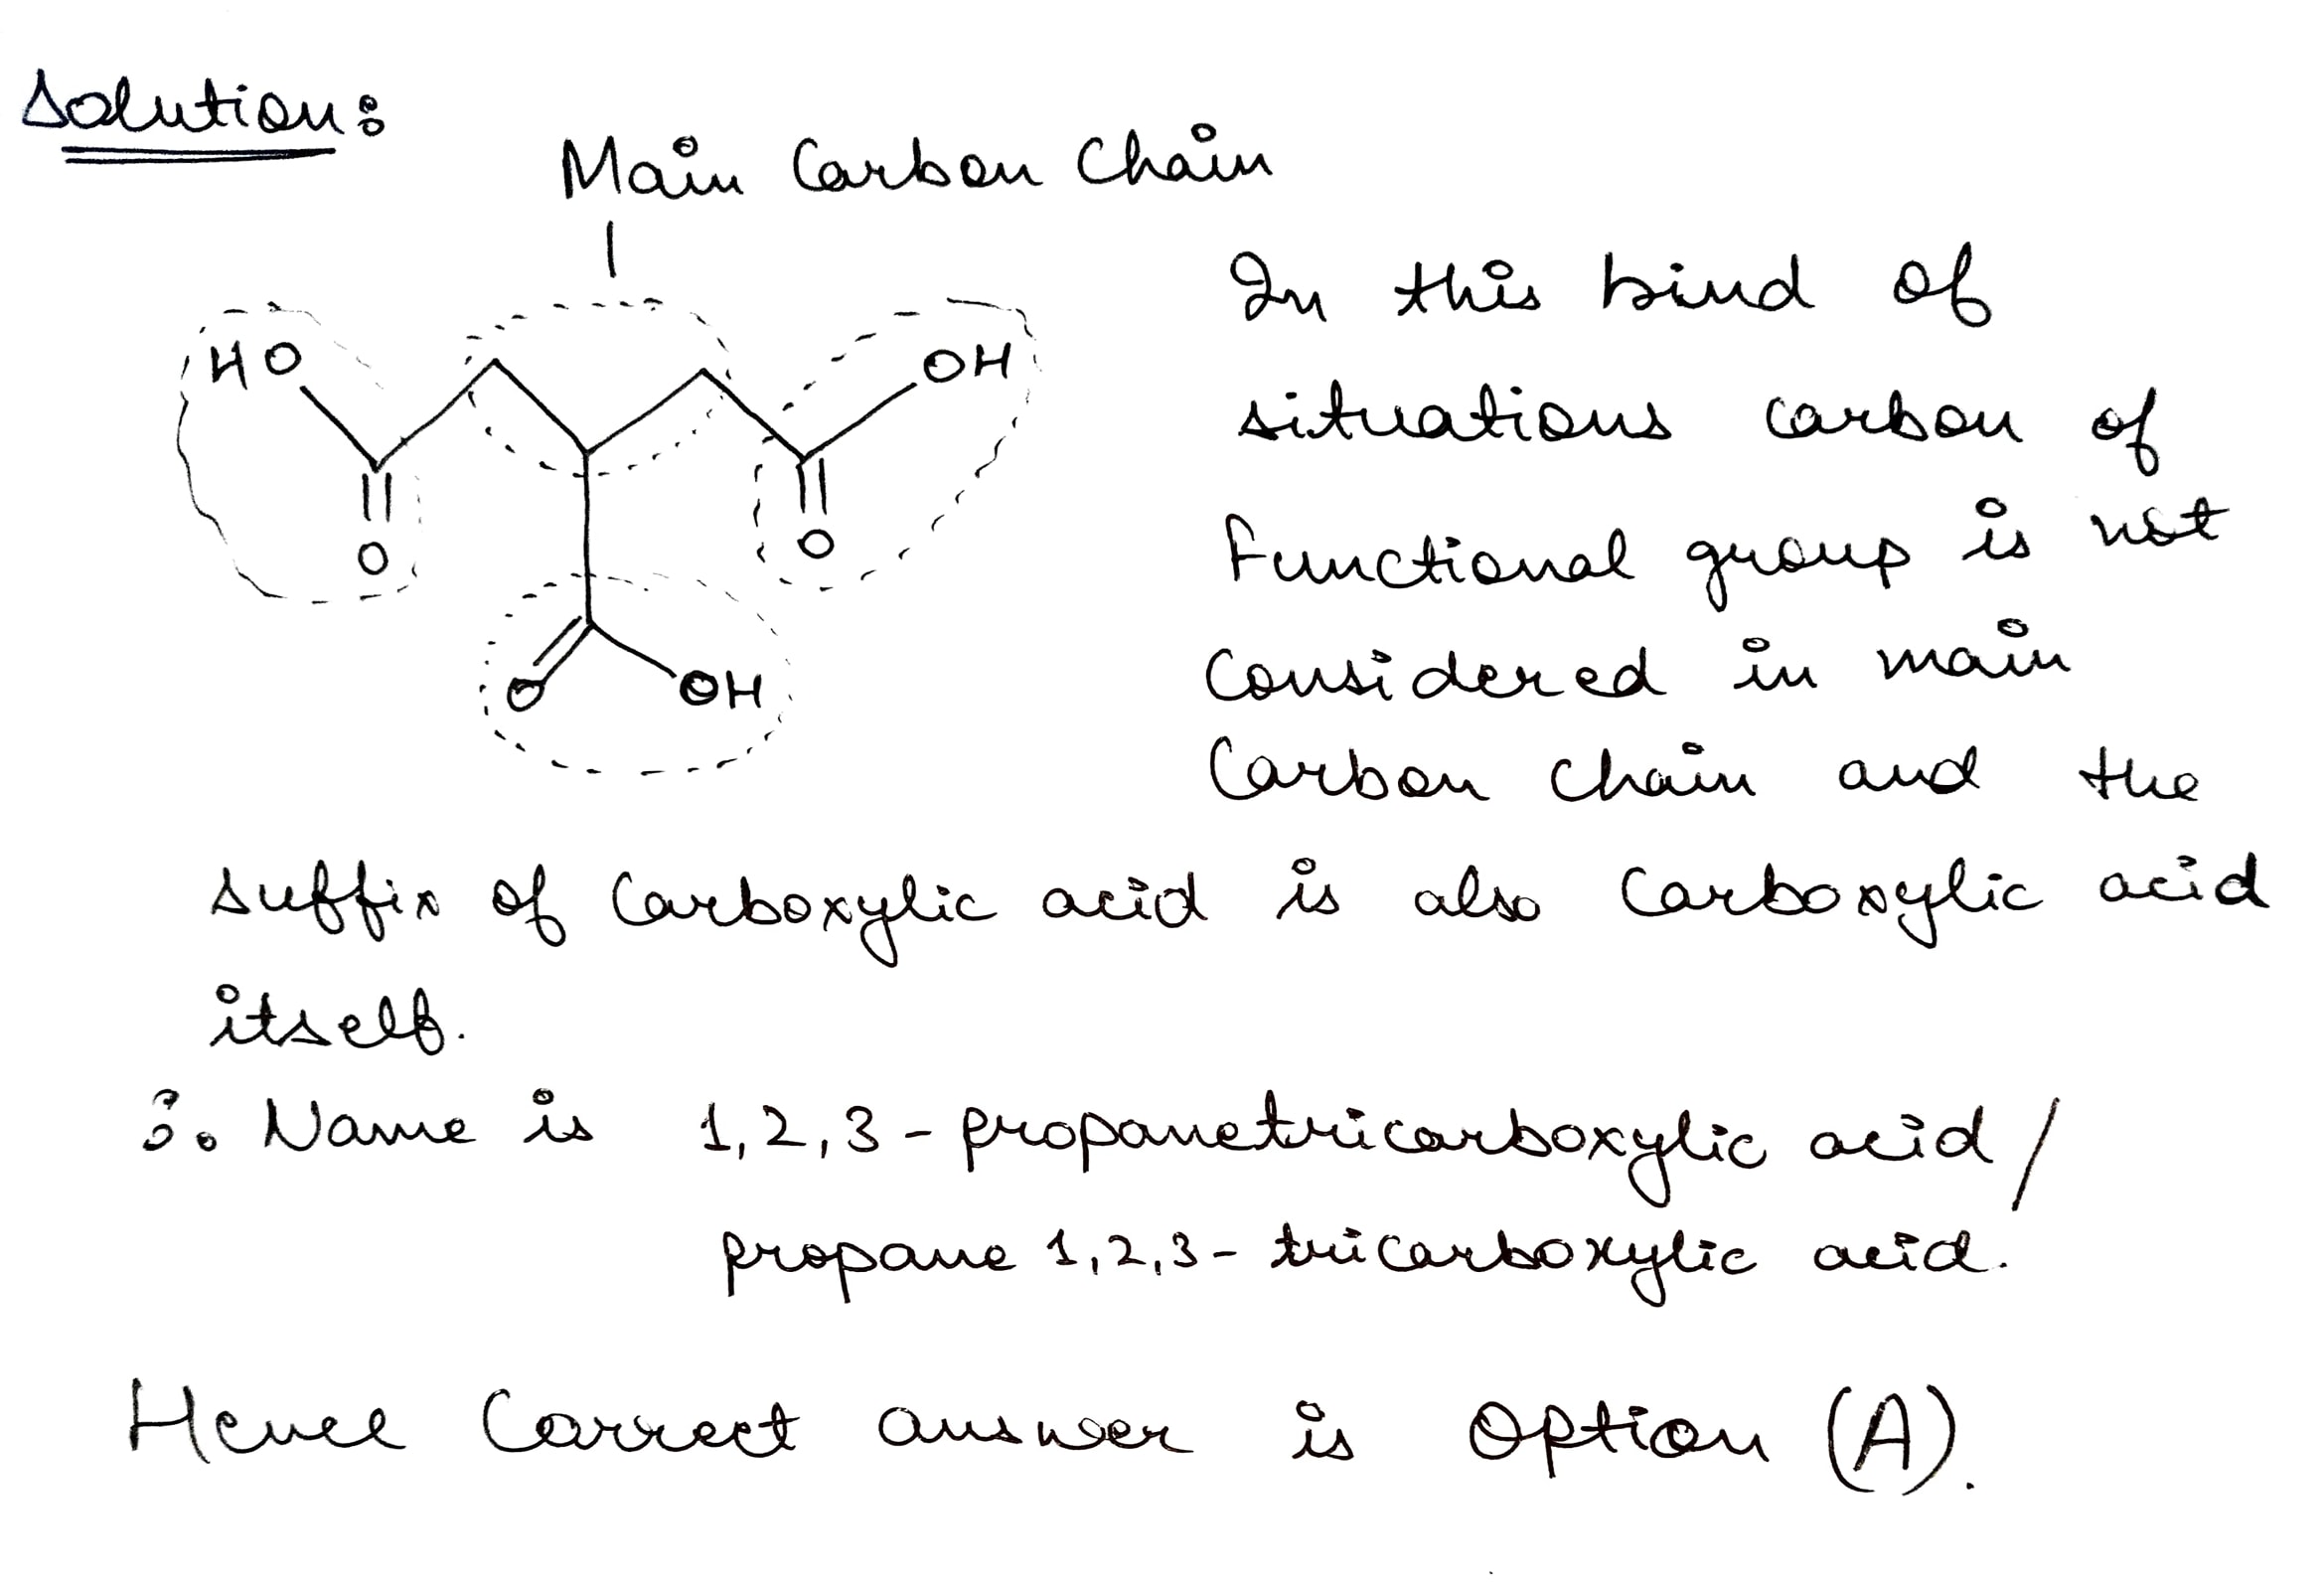 Solution:
Main Carbon Chain
HO
OH
O
O
O
OH
In this kind of
situations carbon of
functional group is not
considered in main
Carbon chain and the
suffix of Carboxylic acid is also Carboxylic acid
itself.
∴ Name is 1,2,3-propanetricarboxylic acid/
propane 1,2,3-tricarboxylic acid.
Hence Correct answer is Option (A).